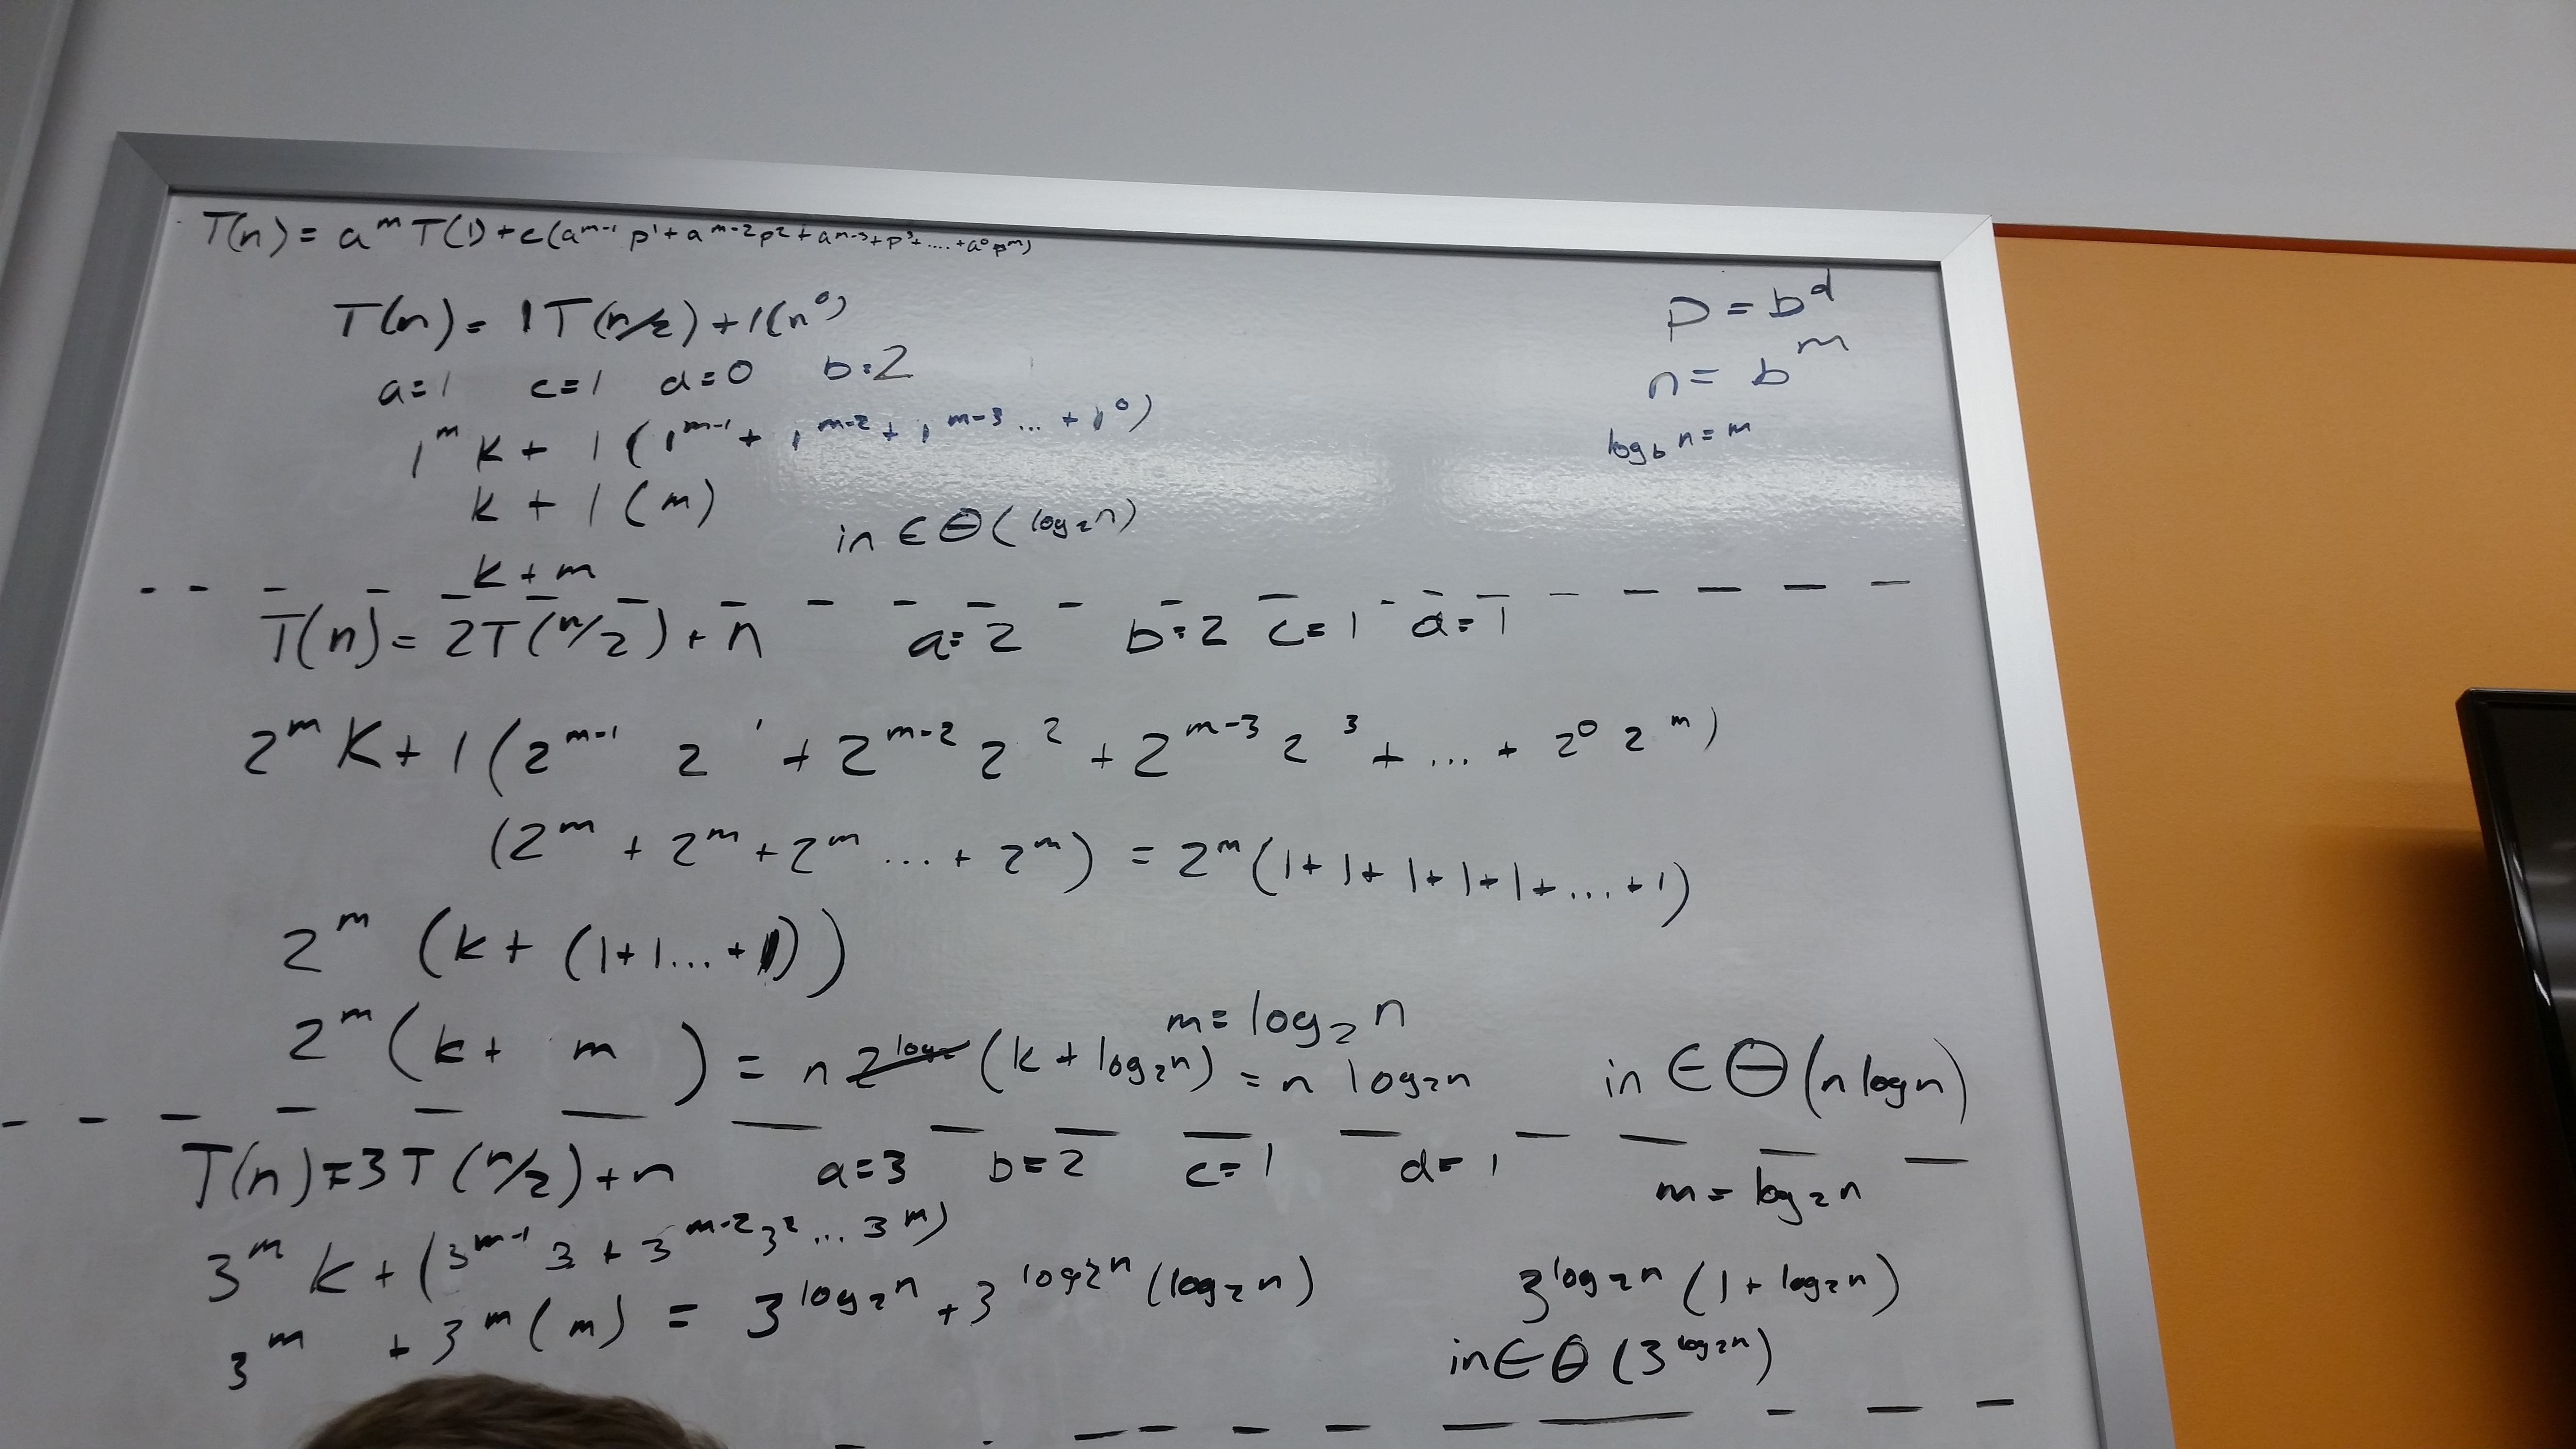 T(n) = a^m T(1) + c(a^{m-1} p^1 + a^{m-2} p^2 + a^{m-3} + p^3 + .... + a^0 p^m)
T(n) = 1T(n/2) + 1(n^0)
p = b^d
a=1 c=1 d=0 b=2
n = b^m
1^m k + 1(1^{m-1} + 1^{m-2} + 1^{m-3} ... + 1^0)
log_b n = m
k + 1(m)
in ∈ Θ(log_2 n)
k + m
T(n) = 2T(n/2) + n a=2 b=2 c=1 d=1
2^m K + 1(2^{m-1} 2^1 + 2^{m-2} 2^2 + 2^{m-3} 2^3 + ... + 2^0 2^m)
(2^m + 2^m + 2^m ... + 2^m) = 2^m(1+1+1+1+1+...+1)
2^m (k + (1+1...+1))
m = log_2 n
2^m (k + m) = n (k + log_2 n) = n log_2 n in ∈ Θ(n log n)
T(n) = 3T(n/2) + n a=3 b=2 c=1 d=1
m = log_2 n
3^m k + (3^{m-1} 3 + 3^{m-2} 3^2 ... 3^m)
3^m + 3^m(m) = 3^{log_2 n} + 3^{log_2 n}(log_2 n) 3^{log_2 n}(1 + log_2 n)
in ∈ Θ(3^{log_2 n})